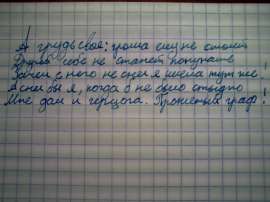 А грудь своя: гроша ему не стоит
Другой себе не станет покупать!
Зачем с него не снял я шлема тут же
А снял бы я, когда б не было стыдно
Мне дам и герцога. Проклятый граф!